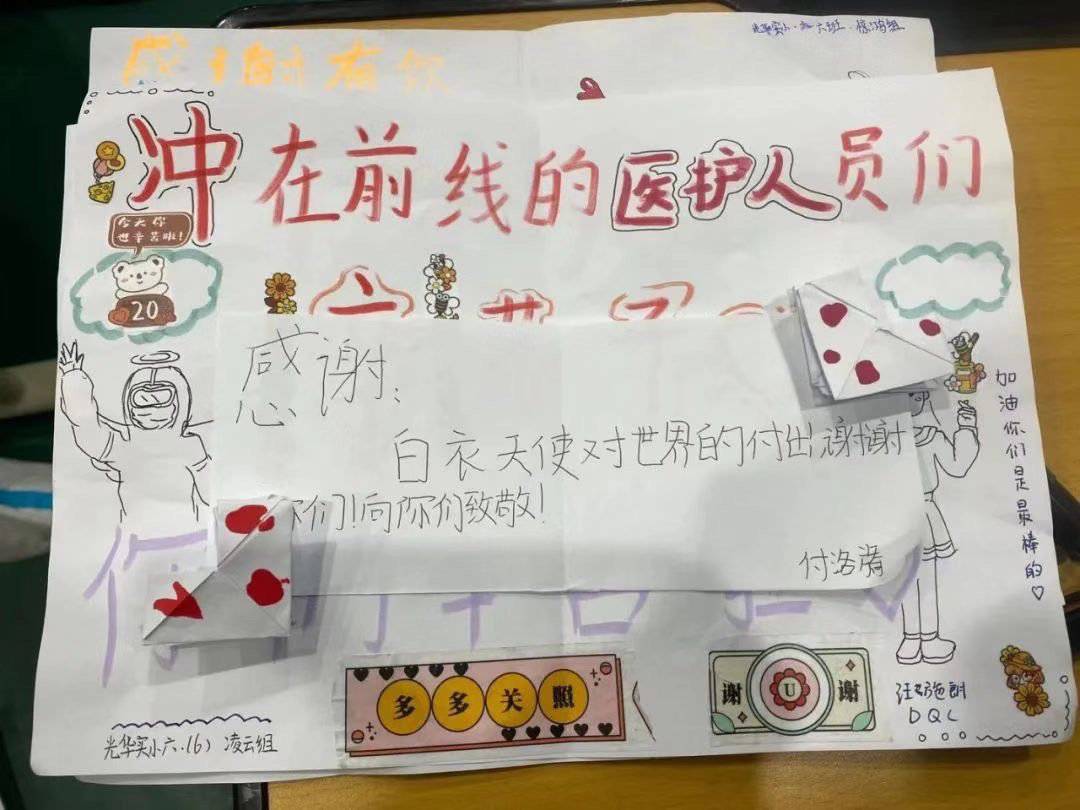 感谢有你
冲在前线的医护人员们
今天你
也辛苦啦!
20
感谢:
白衣天使对世界的付出,谢谢
你们!向你们致敬!
付洛漪
加油你们是最棒的♡
多多关照
谢 U 谢
DQC
光华实小六.(6) 凌云组